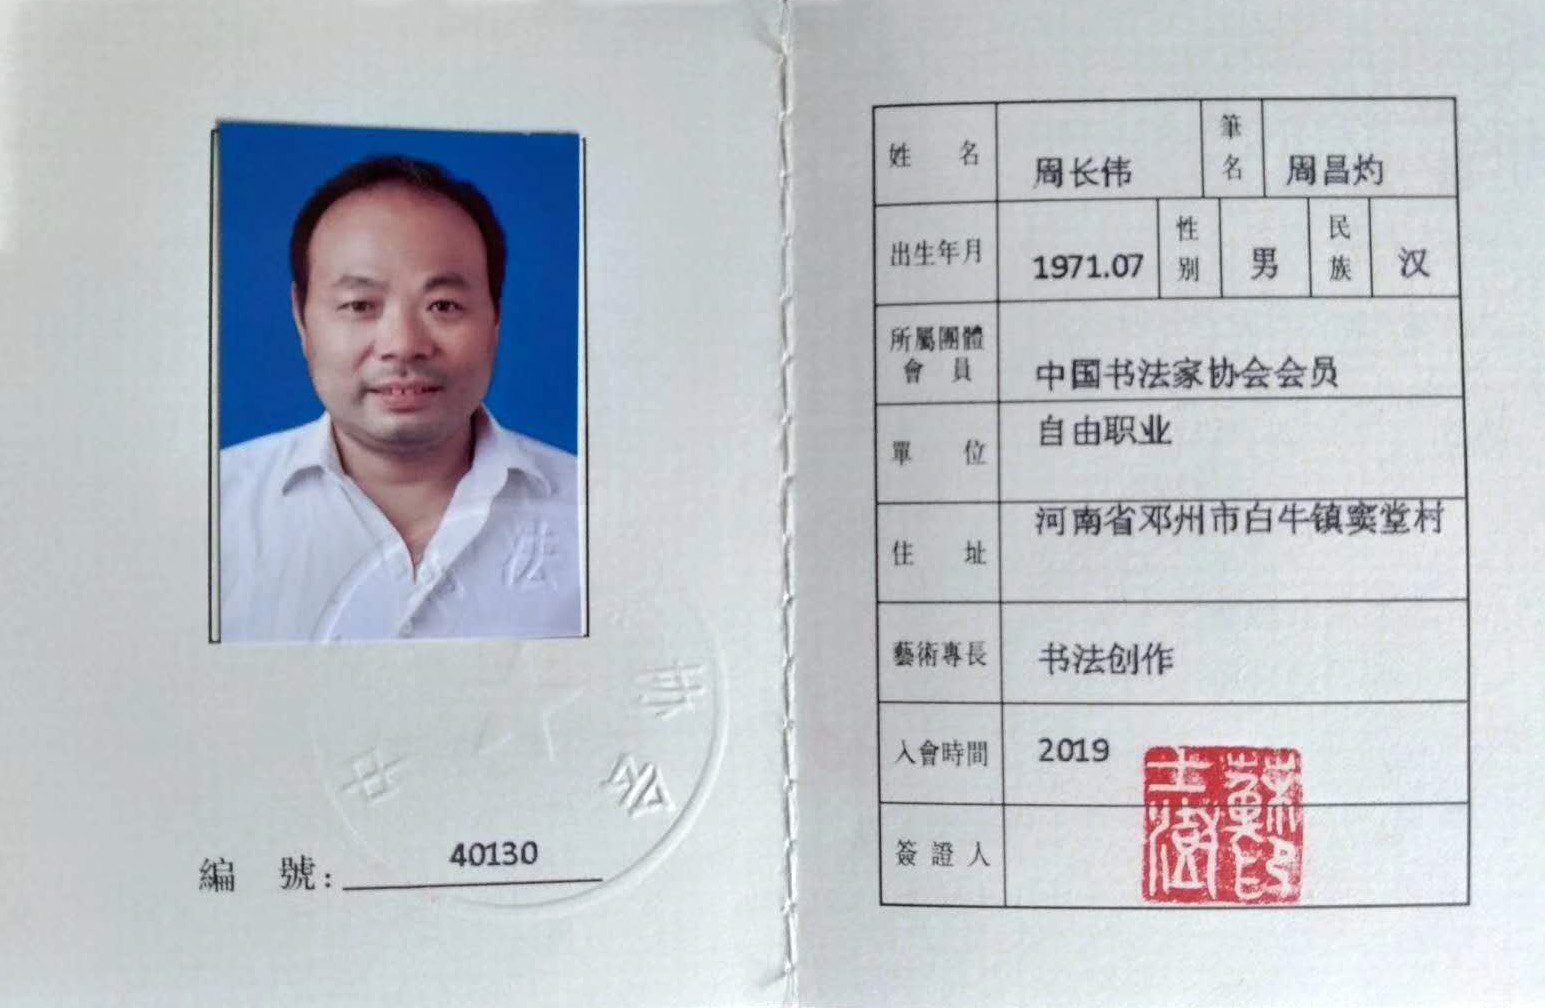 法
书
会
中
編 號: 40130
姓 名 周长伟 筆名 周昌灼
出生年月 1971.07 性别 男 民族 汉
所屬團體會員 中国书法家协会会员
單 位 自由职业
住 址 河南省邓州市白牛镇窦堂村
藝術專長 书法创作
入會時間 2019
簽證人